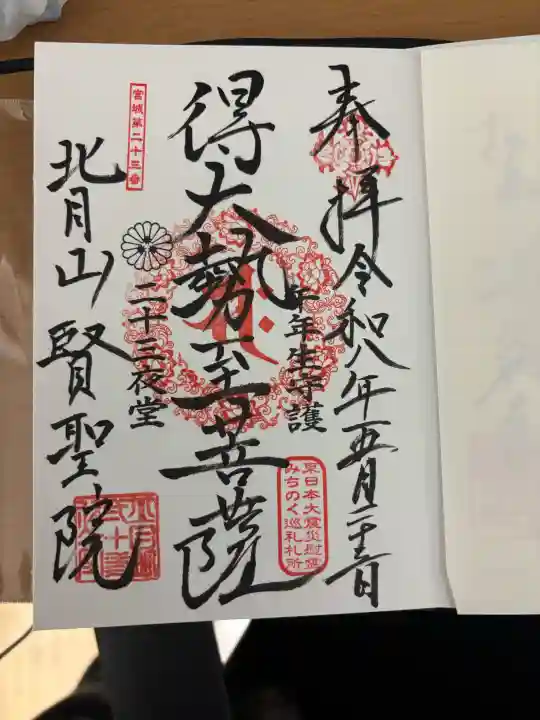 奉拝令和八年五月二十三日
午年生守護
東日本大震災慰霊
みちのく巡礼札所
得大勢至菩薩
宮城第二十三番
二十三夜堂
北月山賢聖院